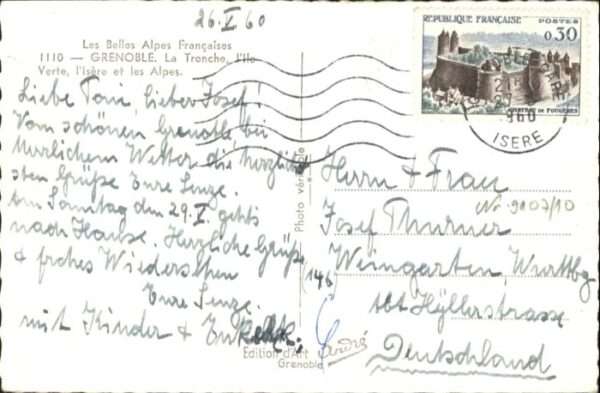 26.V 60
Les Belles Alpes Françaises
1110 — GRENOBLE. La Tronche, l'Ile
Verte, l'Isère et les Alpes.
Liebe Toni, Lieber Josef!
Vom schönen Grenoble bei
herrlichem Wetter die herzlich
sten Grüße Eure Senze.
am Sonntag den 29.V. gehts
nach Hause. Herzliche Grüße
& frohes Wiedersehen
Eure Senze.
mit Kinder & Enkele.
Photo véritable
Edition d'Art André
Grenoble
RÉPUBLIQUE FRANÇAISE POSTES
0,30
CHATEAU DE FOUGÈRES
GARE
960
ISERE
Herrn & Frau
Nr 9107/10
Josef Thurner
Weingarten, Württbg
146
Abt Hyllerstrasse
Deutschland